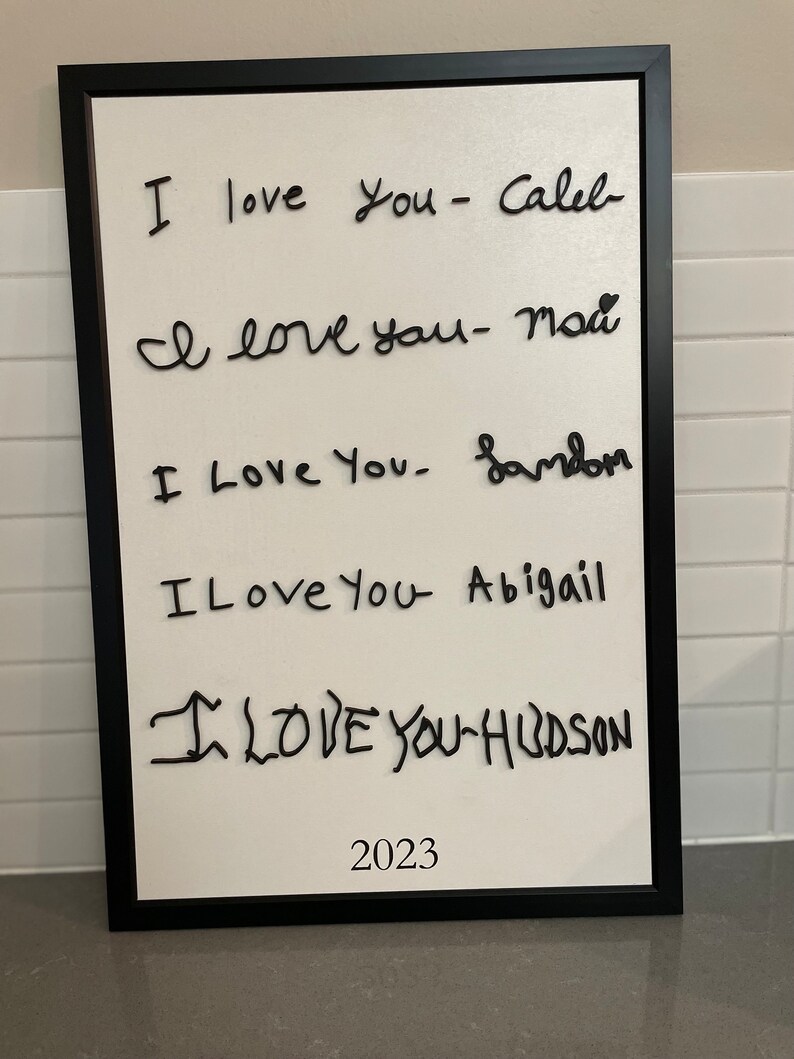 I love you - Caleb
I love you -
I Love You - Landon
I Love You - Abigail
I LOVE YOU - HUDSON
2023